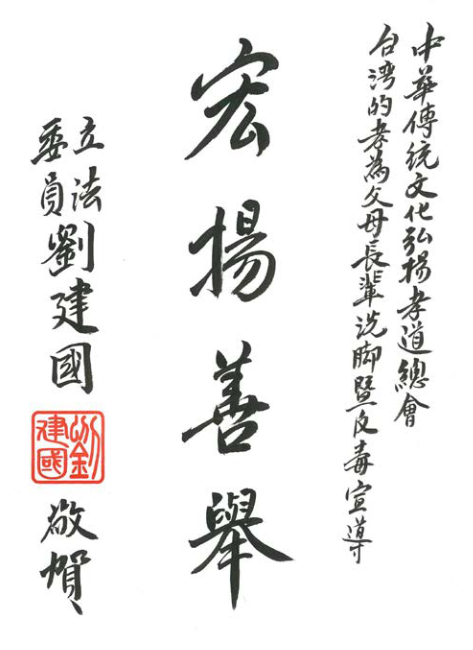 中華傳統文化弘揚孝道總會
台灣的孝為父母長輩洗脚暨反毒宣導
宏揚善舉
立法委員劉建國
劉建國
敬賀